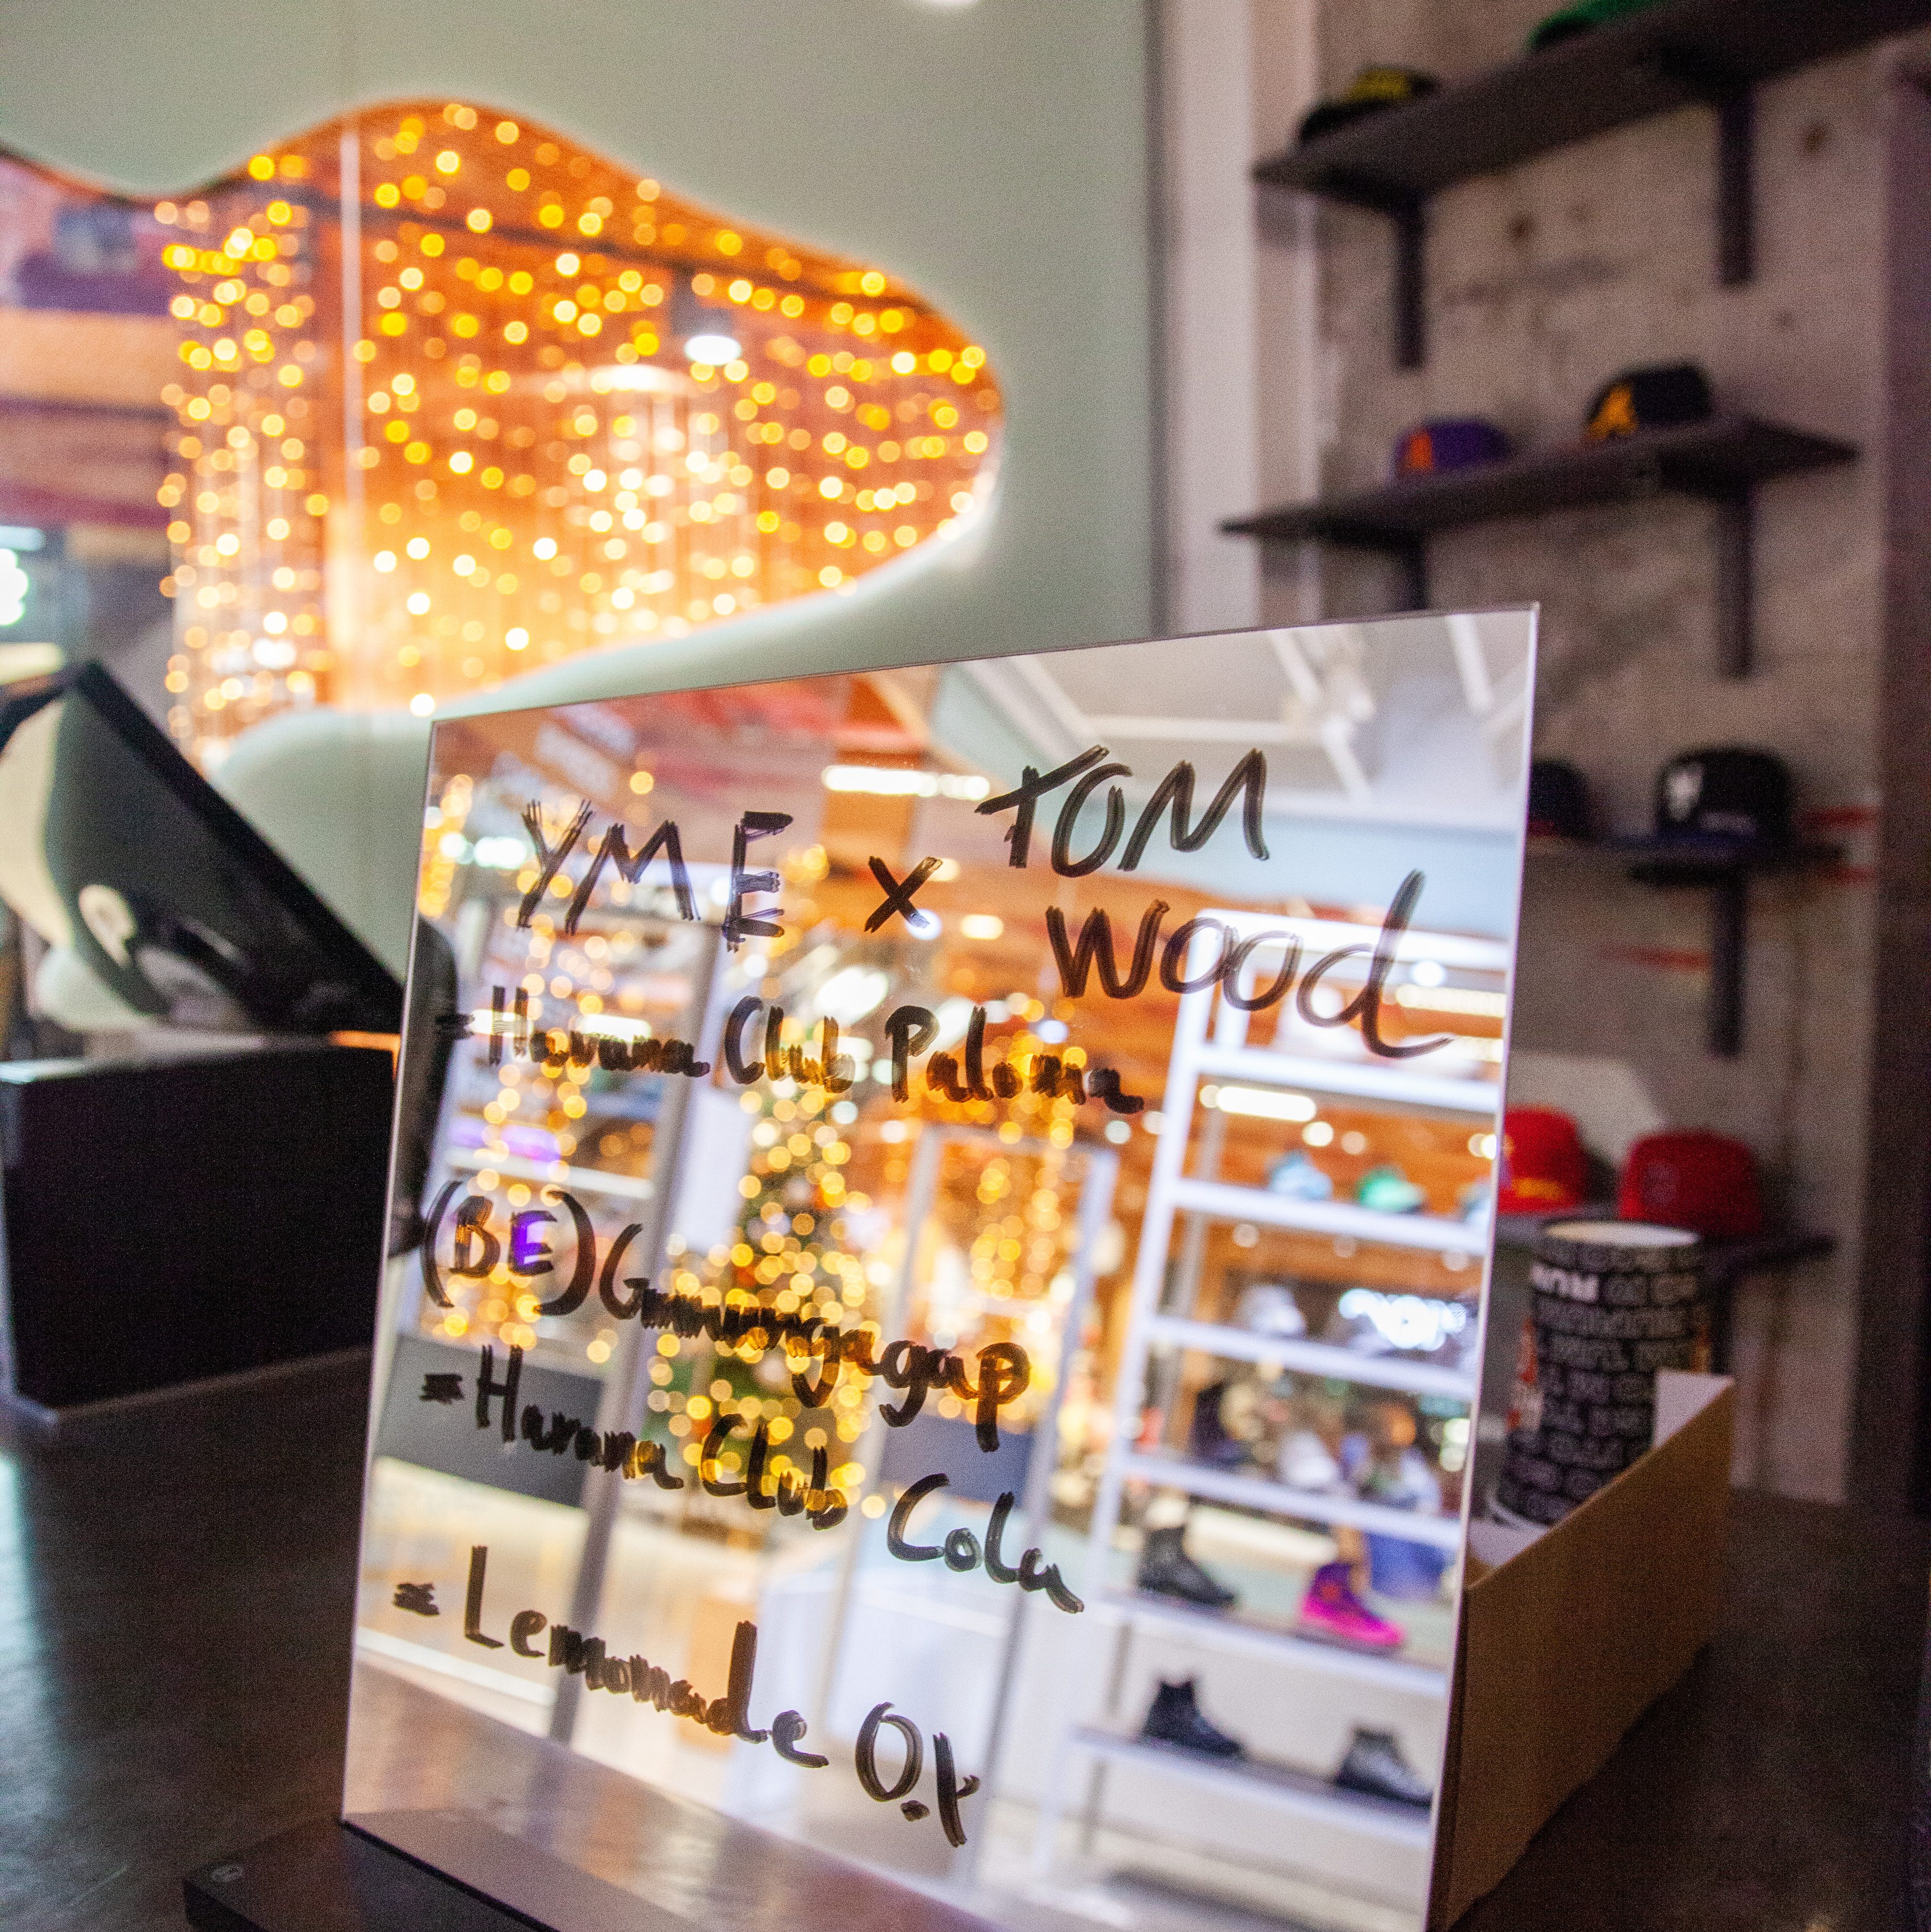 YME x TOM
WOOD
= Havana Club Paloma
(BE) Ginnungagap
= Havana Club Cola
= Lemonade 0.x